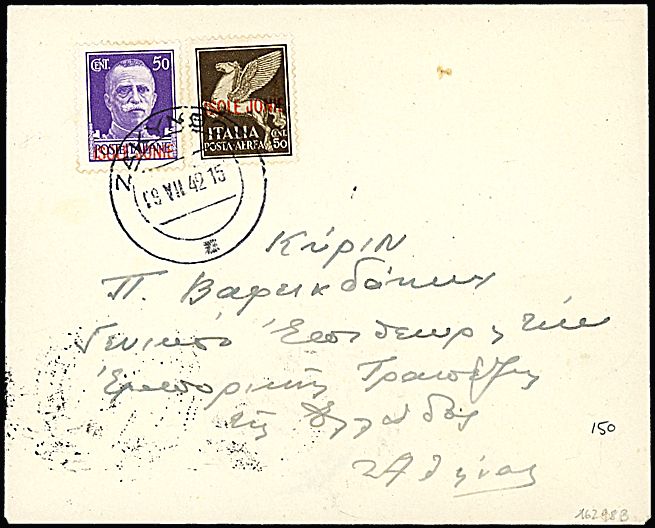 CENT. 50
POSTE ITALIANE
ISOLE JONIE
ISOLE JONIE
ITALIA
POSTA-AEREA CENT. 50
09 VII 42 15
Κύριν
Π.
Γενικόν
Ἐμπορικῆς Τραπέζης
τῆς Ἑλλάδος
Ἀθήνας
150
16298B